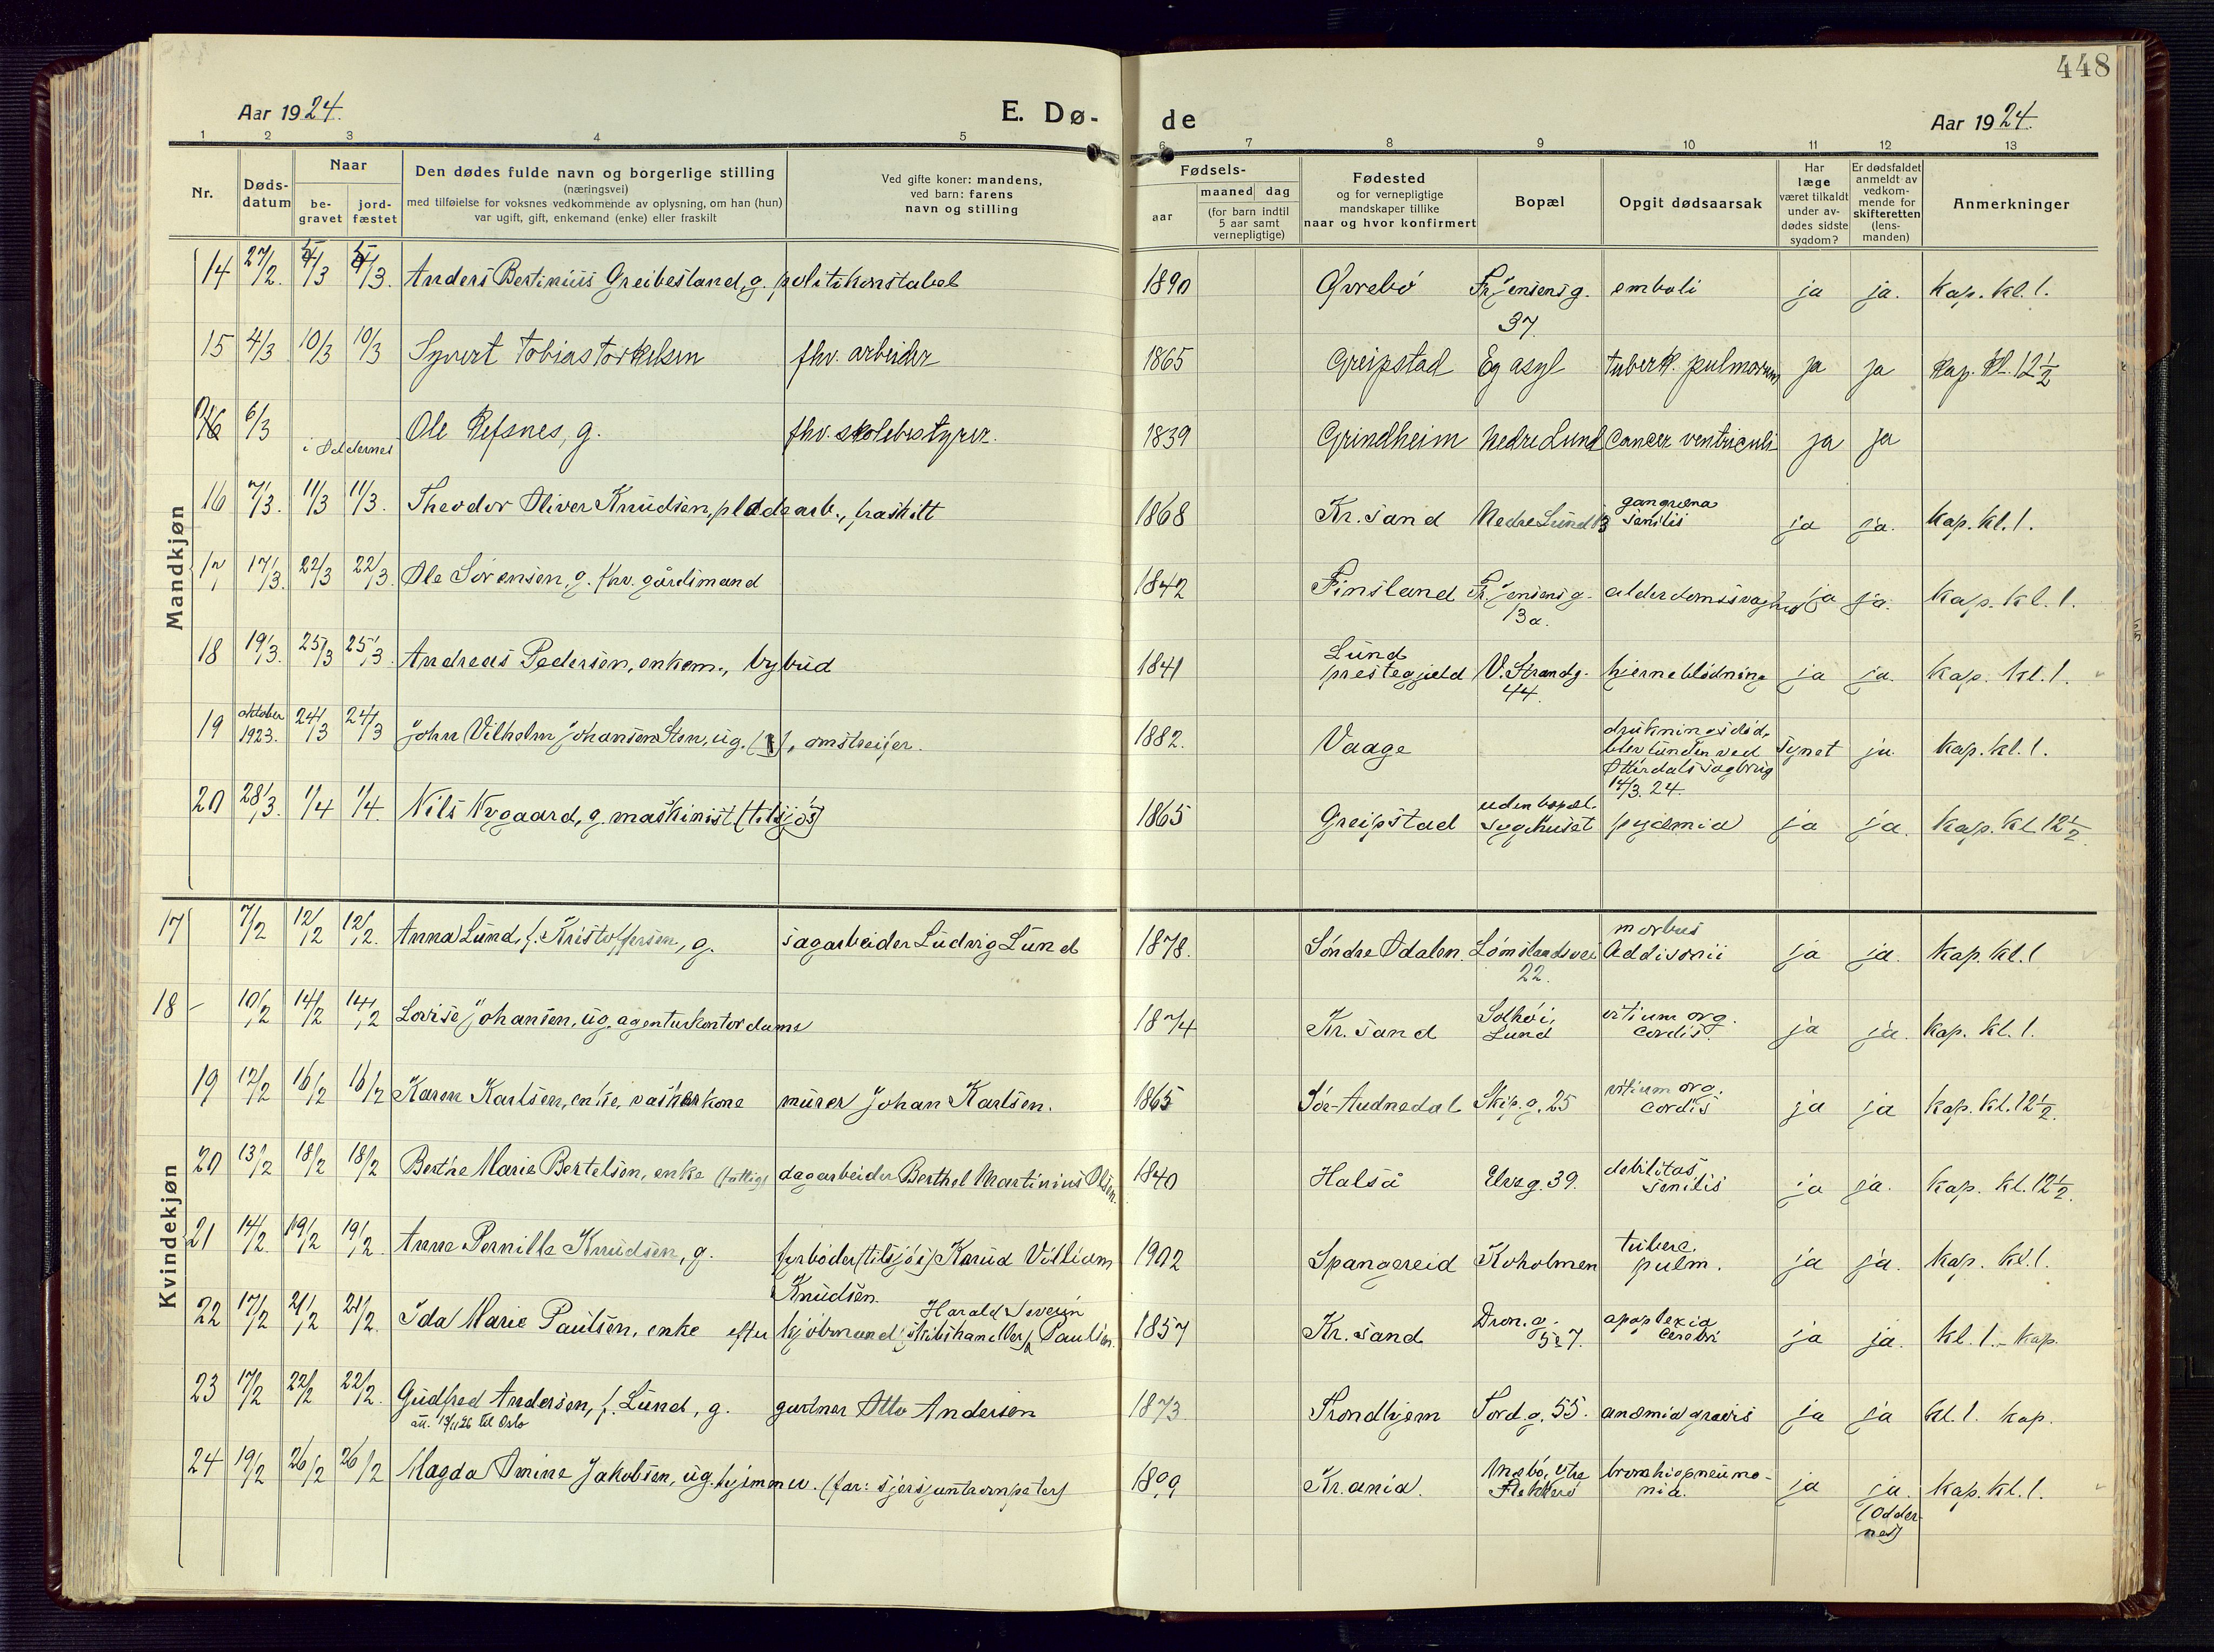 448
Aar 1924. E. Dø- de Aar 1924.
1 2 3 4 5 6 7 8 9 10 11 12 13
Nr. Døds-datum Naar begravet jordfæstet Den dødes fulde navn og borgerlige stilling (næringsvei) med tilføielse for voksnes vedkommende av oplysning, om han (hun) var ugift, gift, enkemand (enke) eller fraskilt Ved gifte koner: mandens, ved barn: farens navn og stilling Fødsels- aar maaned dag (for barn indtil 5 aar samt vernepligtige) Fødested og for vernepligtige mandskaper tillike naar og hvor konfirmert Bopæl Opgit dødsaarsak Har læge været tilkaldt under avdødes sidste sygdom? Er dødsfaldet anmeldt av vedkommende for skifteretten (lensmanden) Anmerkninger
Mandkjøn
14 27/2. 5/3 5/3. Anders Bertinius Greibesland, g. politikonstabel 1890 Øvrebø Fr. Jensensg. 37 emboli ja ja. Kap. kl. 1.
15 4/3 10/3 10/3 Syvert Tobias Torkelsen fhv. arbeider 1865 Greipstad Eg asyl tuberk. pulmorum ja ja Kap. kl. 12½
6/3 i Oddernes Ole Refsnes, g. fhv. skolebestyrer. 1839 Grindheim Nedre Lund Cancer ventriculi ja ja
16 7/3. 11/3 11/3. Theodor Oliver Knudsen, pladearb., fraskilt 1868 Kr.sand Nedre Lund 13 gangræna senilis ja ja. Kap. kl. 1.
17 17/3. 22/3 22/3. Ole Sørensen, g. fhv. gårdsmand 1842 Finsland Fr. Jensensg. 13a. alderdomssvaghed ja ja. Kap. kl. 1.
18 19/3. 25/3 25/3. Andreas Pedersen, enkem., bybud 1841 Lund prestegjeld V. Strandg. 44. hjerneblødning ja ja. Kap. kl. 1.
19 oktober 1923. 24/3 24/3 John Vilhelm Johansen Sten, ug. , omstreifer. 1882. Vaage drukningsdød, blev funden ved Otterdals sagbrug 14/3. 24. synet ja. Kap. kl. 1.
20 28/3. 1/4 1/4. Nils Nygaard, g. maskinist (tilsjøs) 1865 Greipstad uden bopæl. sygehuset pyæmia ja ja. Kap. kl 12½.
Kvindekjøn
17 7/2 12/2 12/2. Anna Lund, f. Kristoffersen, g. sagarbeider Ludvig Lund 1878. Søndre Odalen. Lømslandsvei 22. morbus Addisonii ja ja. Kap. kl. 1
18 - 10/2 14/2 14/2 Lovise Johansen, ug. agenturkontordame 1874 Kr.sand Solhøi, Lund vitium org. cordis. ja ja. Kap. kl. 1.
19 12/2 16/2 16/2 Karen Karlsen, enke, vaskerkone murer Johan Karlsen. 1865 Sør-Audnedal Skip.g. 25 vitium org. cordis ja ja Kap. kl. 12½.
20 13/2 18/2 18/2 Berthe Marie Bertelsen, enke (fattig) dagarbeider Berthel Martinius Olsen. 1840 Halså Elveg. 39. debilitas senilis ja ja. Kap. kl. 12½.
21 14/2. 19/2 19/2. Anne Pernille Knudsen, g. fyrbøder (tilsjøs) Knud Villiam Knudsen. 1902 Spangereid Koholmen tuberc. pulm. ja ja. Kap. kl. 1.
22 17/2 21/2 21/2. Ida Marie Paulsen, enke efter kjøbmand (skibshandler) Harald Severin Paulsen. 1857 Kr.sand Dron.g. 57. apoplexia cerebri ja ja. kl. 1. - kap.
23 17/2 22/2 22/2. Gudfred Andersen, f. Lund, g. gartner Otto Andersen 1873. Trondhjem Tord.g. 55. anæmia gravis ja ja kl. 1. kap.
att. 13/11 26 til Oslo
24 19/2 26/2 26/2 Magda Amine Jakobsen, ug. hjemmev. (far: ) Kr.ania. Flekkerø bronchiopneumonia. ja ja. (Oddernes) Kap. kl. 1.